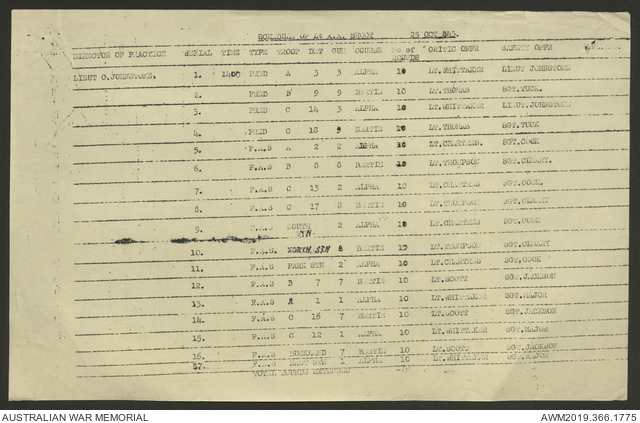 SCHEDULE OF LT A.A. SHOOT 25 OCT 943.
DIRECTOR OF PRACTICE SERIAL TIME TYPE TROOP DET GUN COURSE No of ROUNDS CRITIC OFFR SAFETY OFFR
LIEUT C.JOHNSTONE. 1. 1400 PRED A 3 3 ALPHA 10 LT.WHITTAKER LIEUT JOHNSTONE
2. PRED B 9 9 BERTIE 10 LT.THOMAS SGT.TUCK.
3. PRED C 14 3 ALPHA 10 LT.WHITTAKER LIEUT.JOHNSTONE
4. PRED C 18 9 BERTIE 10 LT.THOMAS SGT.TUCK
5. F.A.S A 2 2 ALPHA 10 LT.CHARTRES. SGT.COOK
6. F.A.S B 8 8 BERTIE 10 LT.THOMPSON SGT.CLEARY.
7. F.A.S C 13 2 ALPHA 10 LT.CHARTRES SGT.COOK.
8. F.A.S C 17 8 BERTIE 10 LT.THOMPSON SGT.CLEARY
9. F.A.S SOUTH STN 2 ALPHA 10 LT.CHARTRES SGT.COOK
10. F.A.S. NORTH STN 8 BERTIE 10 LT.THOMPSON SGT.CLEARY
11. F.A.S PARK STN 2 ALPHA 10 LT.CHARTRES SGT.COOK
12. F.A.S B 7 7 BERTIE 10 LT.SCOTT SGT.JACKSON
13. F.A.S A 1 1 ALPHA 10 LT.WHITTAKER SGT.MAJOR
14. F.A.S C 16 7 BERTIE 10 LT.SCOTT SGT.JACKSON
15. F.A.S C 12 1 ALPHA 10 LT.WHITTAKER SGT.MAJOR
16. F.A.S BUCKLAND 7 BERTIE 10 LT.SCOTT SGT.JACKSON
17. F.A.S STN ALPHA 10 LT.WHITTAKER SGT.MAJOR
TOTAL ROUNDS
AUSTRALIAN WAR MEMORIAL AWM2019.366.1775